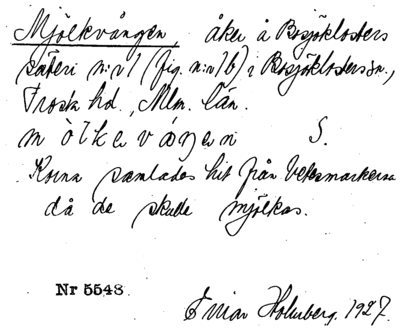 Mjölkvången, åker å Bosjöklosters
säteri n:r 1 (fig. n:r 1b) i Bosjökloster sn.,
Frosta hd., Mlm. län.
mòlkeváŋen S.
Korna samlades hit från betesmarkerna
då de skulle mjölkas.
Nr 5548
Einar Holmberg. 1927.